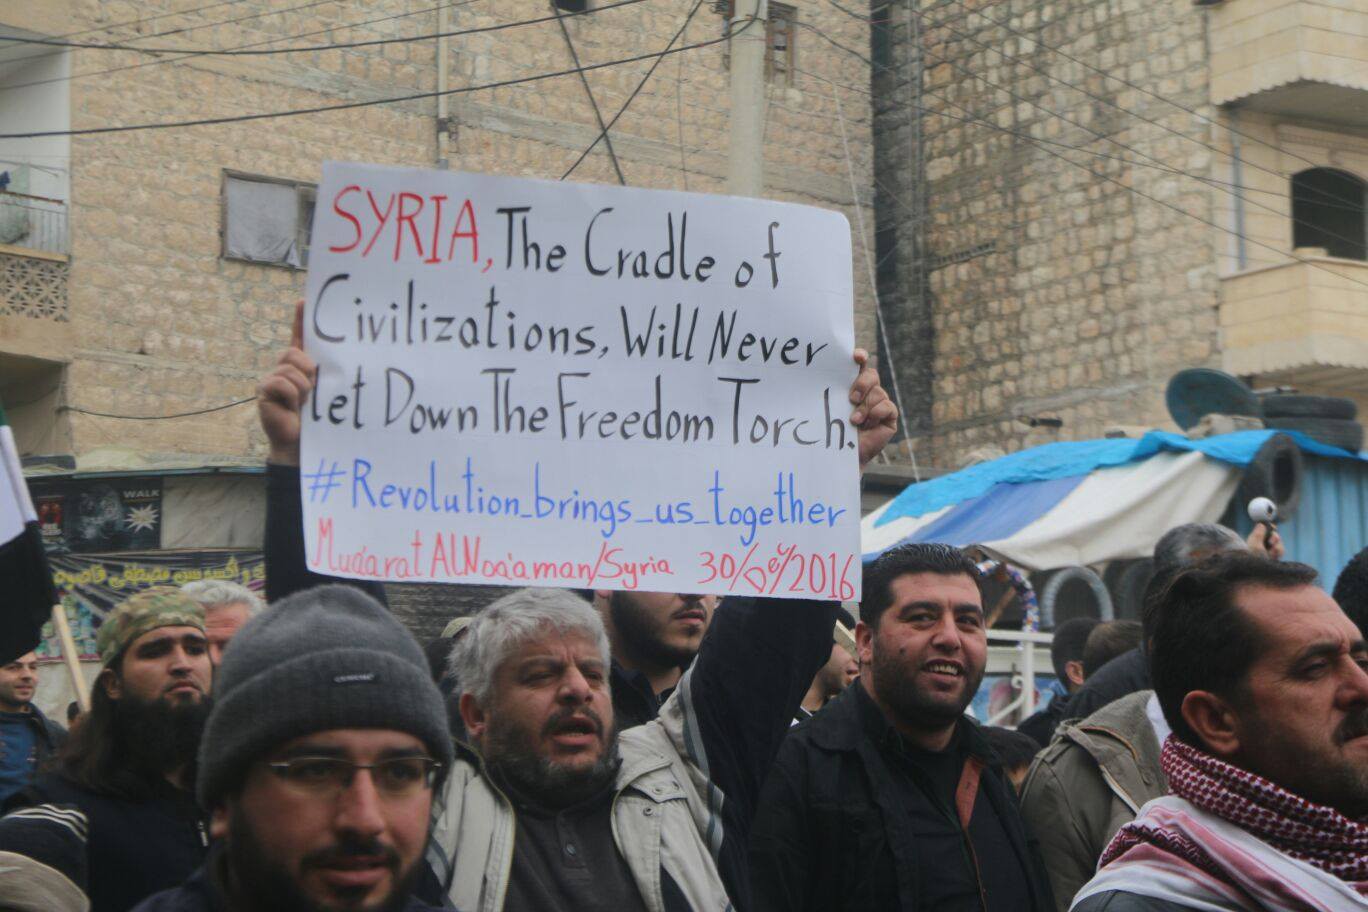 SYRIA, The Cradle of
Civilizations, Will Never
Let Down The Freedom Torch.
#Revolution_brings_us_together
Muqarat ALNoa'aman/Syria 30/Dec/2016
WALK